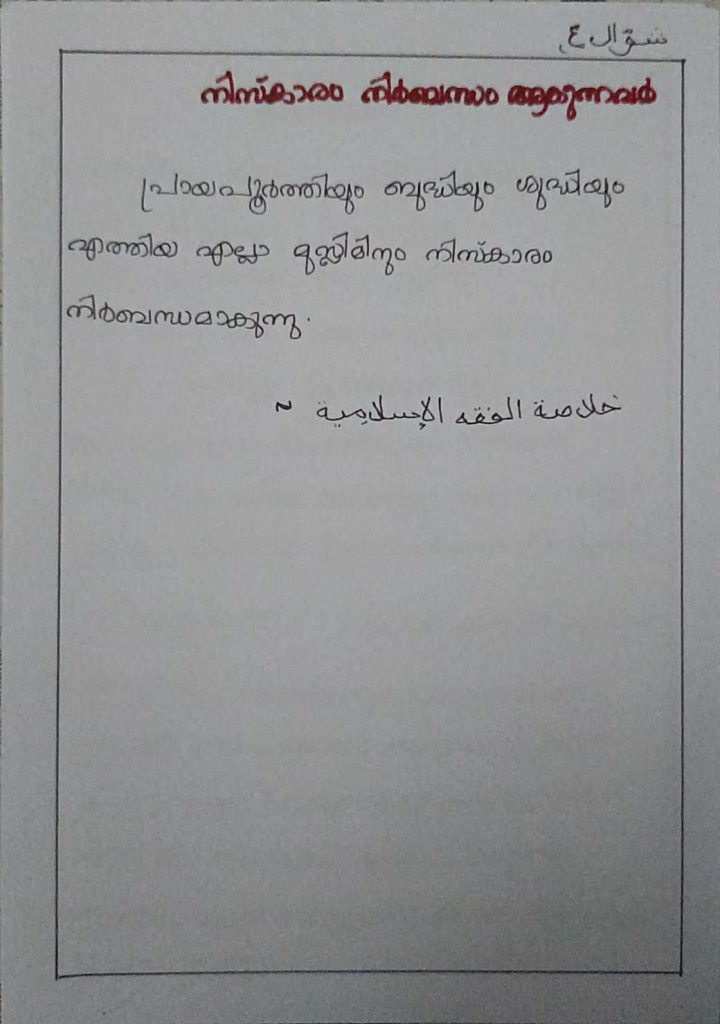 شوال ٤
നിസ്കാരം നിർബന്ധം ആകുന്നവർ
പ്രായപൂർത്തിയും ബുദ്ധിയും ശുദ്ധിയും
എത്തിയ എല്ലാ മുസ്ലിമിനും നിസ്കാരം
നിർബന്ധമാകുന്നു.
خلاصة الفقه الإسلامية ~